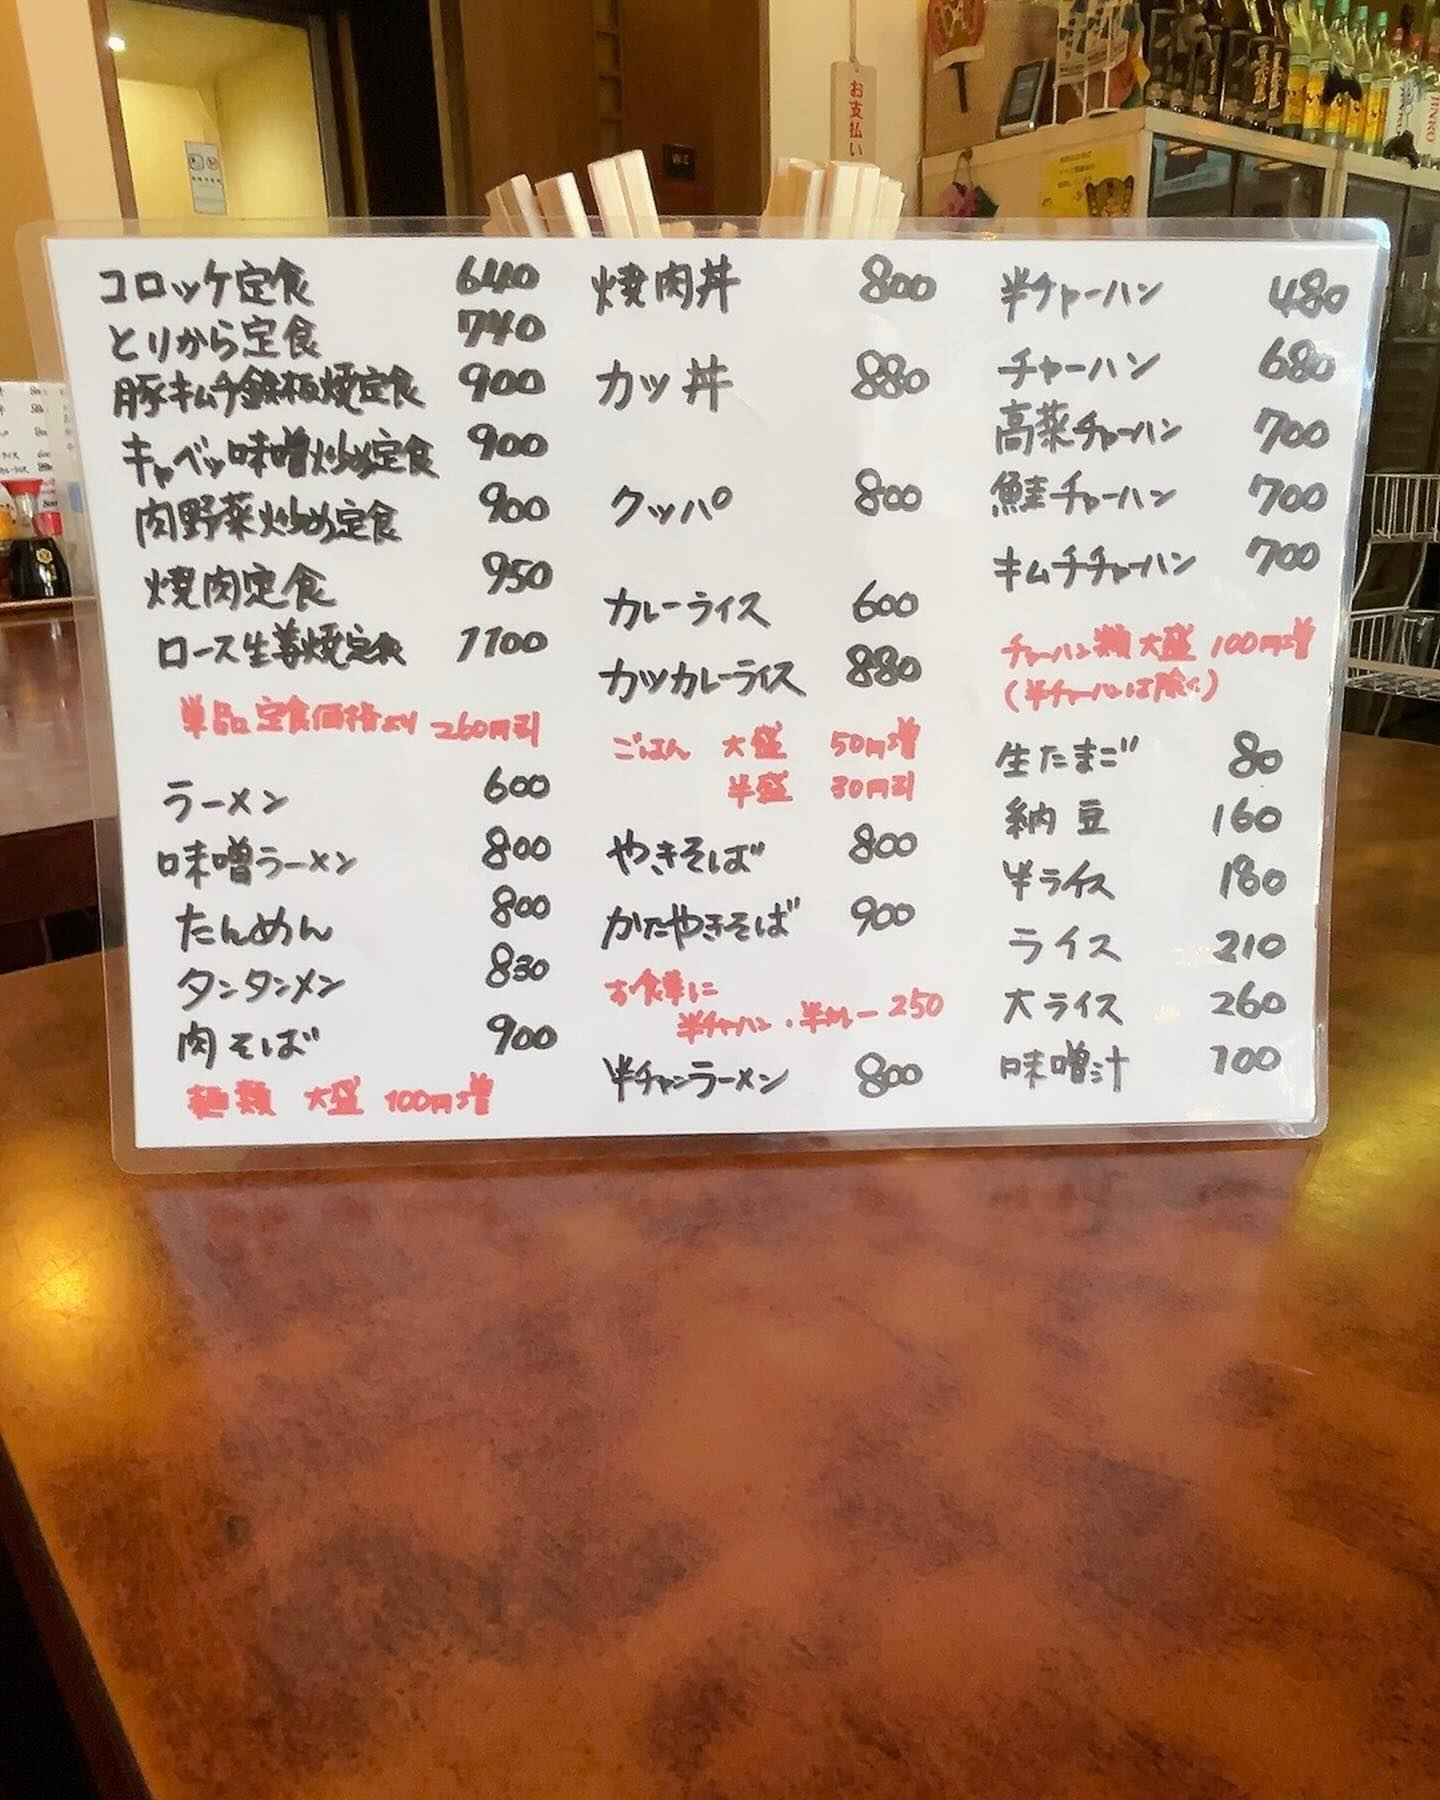 お支払い
コロッケ定食 640
とりから定食 740
豚キムチ鉄板焼定食 900
キャベツ味噌炒め定食 900
肉野菜炒め定食 900
焼肉定食 950
ロース生姜焼定食 1100
単品定食価格より 260円引
ラーメン 600
味噌ラーメン 800
たんめん 800
タンタンメン 830
肉そば 900
麺類 大盛 100円増
焼肉丼 800
カツ丼 880
クッパ 800
カレーライス 600
カツカレーライス 880
ごはん 大盛 50円増
半盛 30円引
やきそば 800
かたやきそば 900
お食事に
半チャーハン・半カレー 250
半チャンラーメン 800
半チャーハン 480
チャーハン 680
高菜チャーハン 700
鮭チャーハン 700
キムチチャーハン 700
チャーハン類 大盛 100円増
(半チャーハンは除く)
生たまご 80
納豆 160
半ライス 180
ライス 210
大ライス 260
味噌汁 100